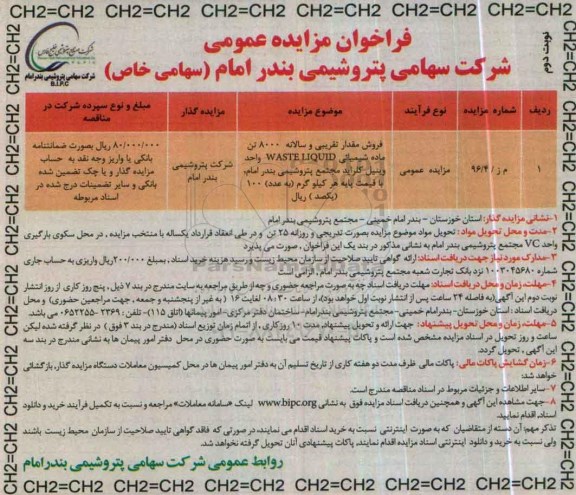 CH2=CH2 CH2=CH2 CH2=CH2 CH2=CH2 CH2=CH2 CH2=CH2 CH2=CH2
نوبت دوم
فراخوان مزایده عمومی
شرکت سهامی پتروشیمی بندر امام (سهامی خاص)
شرکت سهامی پتروشیمی بندر امام
B.I.P.C
ردیف
شماره مزایده
نوع فرآیند
موضوع مزایده
مزایده گذار
مبلغ و نوع سپرده شرکت در مناقصه
۱
م ز / ۹۶/۴
مزایده عمومی
فروش مقدار تقریبی و سالانه ۸۰۰۰ تن
ماده شیمیائی WASTE LIQUID واحد
وینیل کلراید مجتمع پتروشیمی بندر امام،
با قیمت پایه هر کیلو گرم (به عدد) ۱۰۰
(یکصد) ریال
شرکت پتروشیمی
بندر امام
۸۰/۰۰۰/۰۰۰ ریال بصورت ضمانتنامه
بانکی یا واریز وجه نقد به حساب
مزایده گذار و یا چک تضمین شده
بانکی و سایر تضمینات درج شده در
اسناد مربوطه
۱-نشانی مزایده گذار: استان خوزستان - بندر امام خمینی - مجتمع پتروشیمی بندر امام
۲-مدت و محل تحویل مواد: تحویل مواد موضوع مزایده بصورت تدریجی و روزانه ۲۵ تن و در طی انعقاد قرارداد یکساله با منتخب مزایده ، در محل سکوی بارگیری
واحد VC مجتمع پتروشیمی بندر امام به نشانی مذکور در بند یک این فراخوان ، صورت می پذیرد
۳-مدارک مورد نیاز جهت دریافت اسناد: ارائه گواهی تایید صلاحیت از سازمان محیط زیست و رسید هزینه خرید اسناد ، بمبلغ ۲۰۰/۰۰۰ریال واریزی به حساب جاری
شماره ۱۰۰۲۰۴۵۶۸۰ نزد بانک تجارت شعبه مجتمع پتروشیمی بندر امام، الزامی است.
۴-مهلت، زمان و محل دریافت اسناد: مهلت دریافت اسناد چه به صورت مراجعه حضوری و چه از طریق مراجعه به سایت مندرج در بند ۷ ذیل ، پنج روز کاری از روز انتشار
نوبت دوم این آگهی(به فاصله ۲۴ ساعت پس از انتشار نوبت اول خواهد بود)، از ساعت ۰۸:۳۰ لغایت ۱۶ ( به غیر از پنجشنبه و جمعه ، جهت مراجعین حضوری) و محل
دریافت اسناد : استان خوزستان-بندر امام خمینی-مجتمع پتروشیمی بندر امام - ساختمان دفتر مرکزی- امور پیمانها (اتاق ۱۱۵)- تلفن : ۲۳۶۹ -۰۶۵۲۲۵۵ می باشد.
۵-مهلت، زمان و محل تحویل پیشنهاد: جهت ارائه و تحویل پیشنهاد مدت ۱۰ روز کاری ، از اتمام زمان توزیع اسناد (مندرج در بند ۴ فوق ) در نظر گرفته شده لیکن
ساعت و روز تحویل در اسناد مزایده مشخص شده است و پاکات پیشنهاد قیمت می بایست به صورت حضوری در محل دفتر امور پیمان ها به نشانی مندرج در بند سه
این آگهی ، تحویل گردد.
۶-زمان گشایش پاکات مالی: پاکات مالی ظرف مدت دو هفته کاری از تاریخ تسلیم آن به دفتر امور پیمان ها در محل کمیسیون معاملات دستگاه مزایده گذار، بازگشائی
خواهد شد.
۷- سایر اطلاعات و جزئیات مربوط در اسناد مناقصه مندرج است.
۸-جهت مشاهده این آگهی و همچنین دریافت اسناد مزایده فوق به نشانی www.bipc.org لینک «سامانه معاملات» مراجعه و نسبت به تکمیل فرآیند خرید و دانلود
اسناد، اقدام نمایید.
تذکر مهم: آن دسته از متقاضیان که به صورت اینترنتی نسبت به خرید اسناد اقدام می نمایند، در صورتی که فاقد گواهی تایید صلاحیت از سازمان محیط زیست باشند
ولی نسبت به خرید و دانلود اینترنتی اسناد مزایده اقدام نمایند، پاکات پیشنهادی آنان تحویل گرفته نخواهد شد.
روابط عمومی شرکت سهامی پتروشیمی بندرامام
CH2=CH2 CH2=CH2 CH2=CH2 CH2=CH2 CH2=CH2 CH2=CH2 CH2=CH2